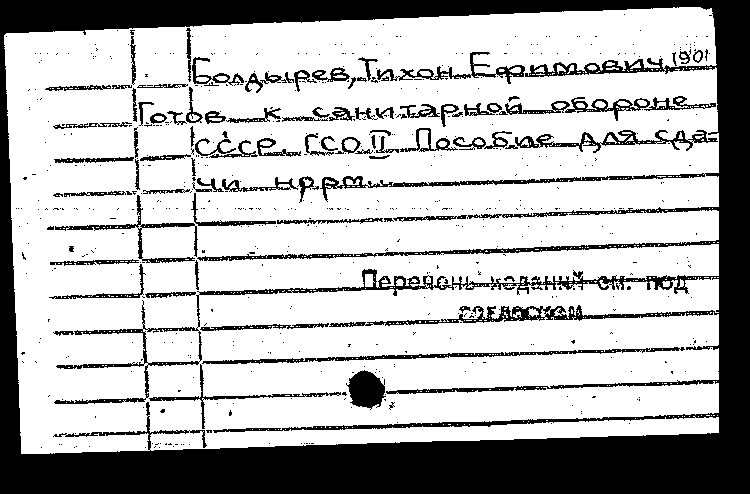 Болдырев, Тихон Ефимович, 1901
Готов к санитарной обороне
СССР. ГСО II Пособие для сда-
чи норм..
Перечень изданий см. под
согласном